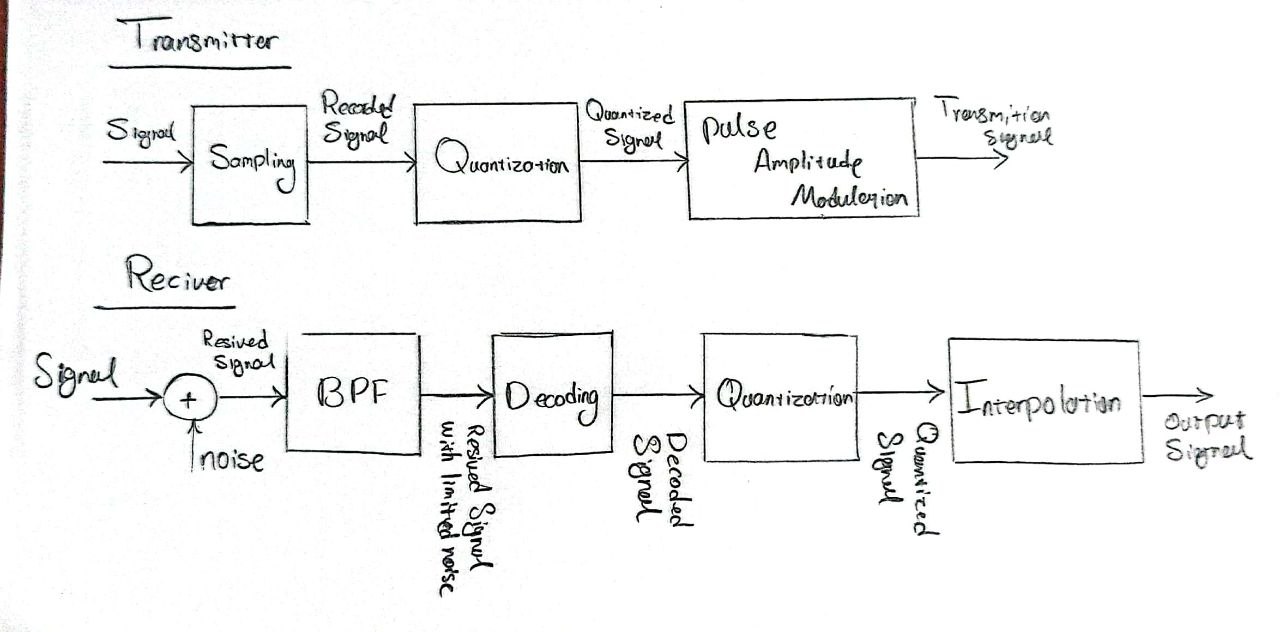 Transmitter
Signal
Sampling
Recoded
Signal
Quantization
Quantized
Signal
Pulse
Amplitude
Modulation
Transmition
Signal
Reciver
Signal
+
noise
Resived
Signal
BPF
Resived Signal
with limited noise
Decoding
Decoded
Signal
Quantization
Quantized
Signal
Interpolation
Output
Signal